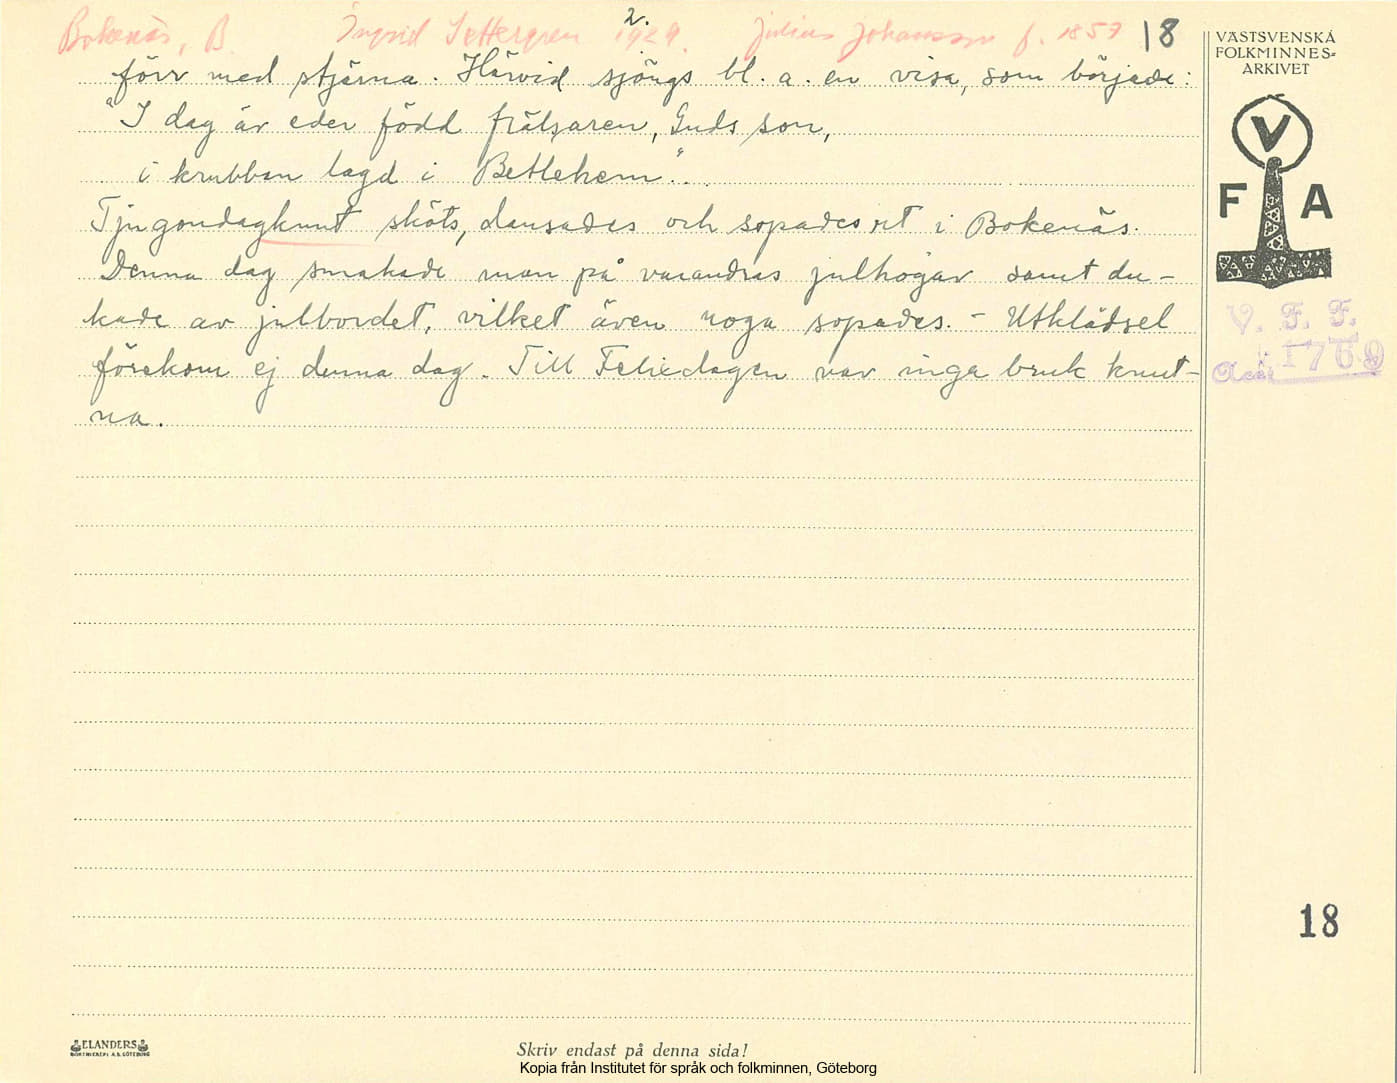 2.
Bokenäs, B. Ingrid Settergren 1929. Julius Johansson f. 1857 18
förr med stjärna. Härvid sjöngs bl. a. en visa, som började:
"I dag är eder född frälsaren, Guds son,
i krubban lagd i Betlehem"...
Tjugondagknut sköts, dansades och sopades ut i Bokenäs.
Denna dag smakade man på varandras julhögar samt du-
kade av julbordet, vilket även noga sopades. - Utklädsel
förekom ej denna dag. Till Felixdagen var inga bruk knut-
na.
VÄSTSVENSKA
FOLKMINNES-
ARKIVET
V
F A
V. F. F.
Acc. 1769
18
ELANDERS
BOKTRYCKERI A.B. GÖTEBORG
Skriv endast på denna sida!
Kopia från Institutet för språk och folkminnen, Göteborg